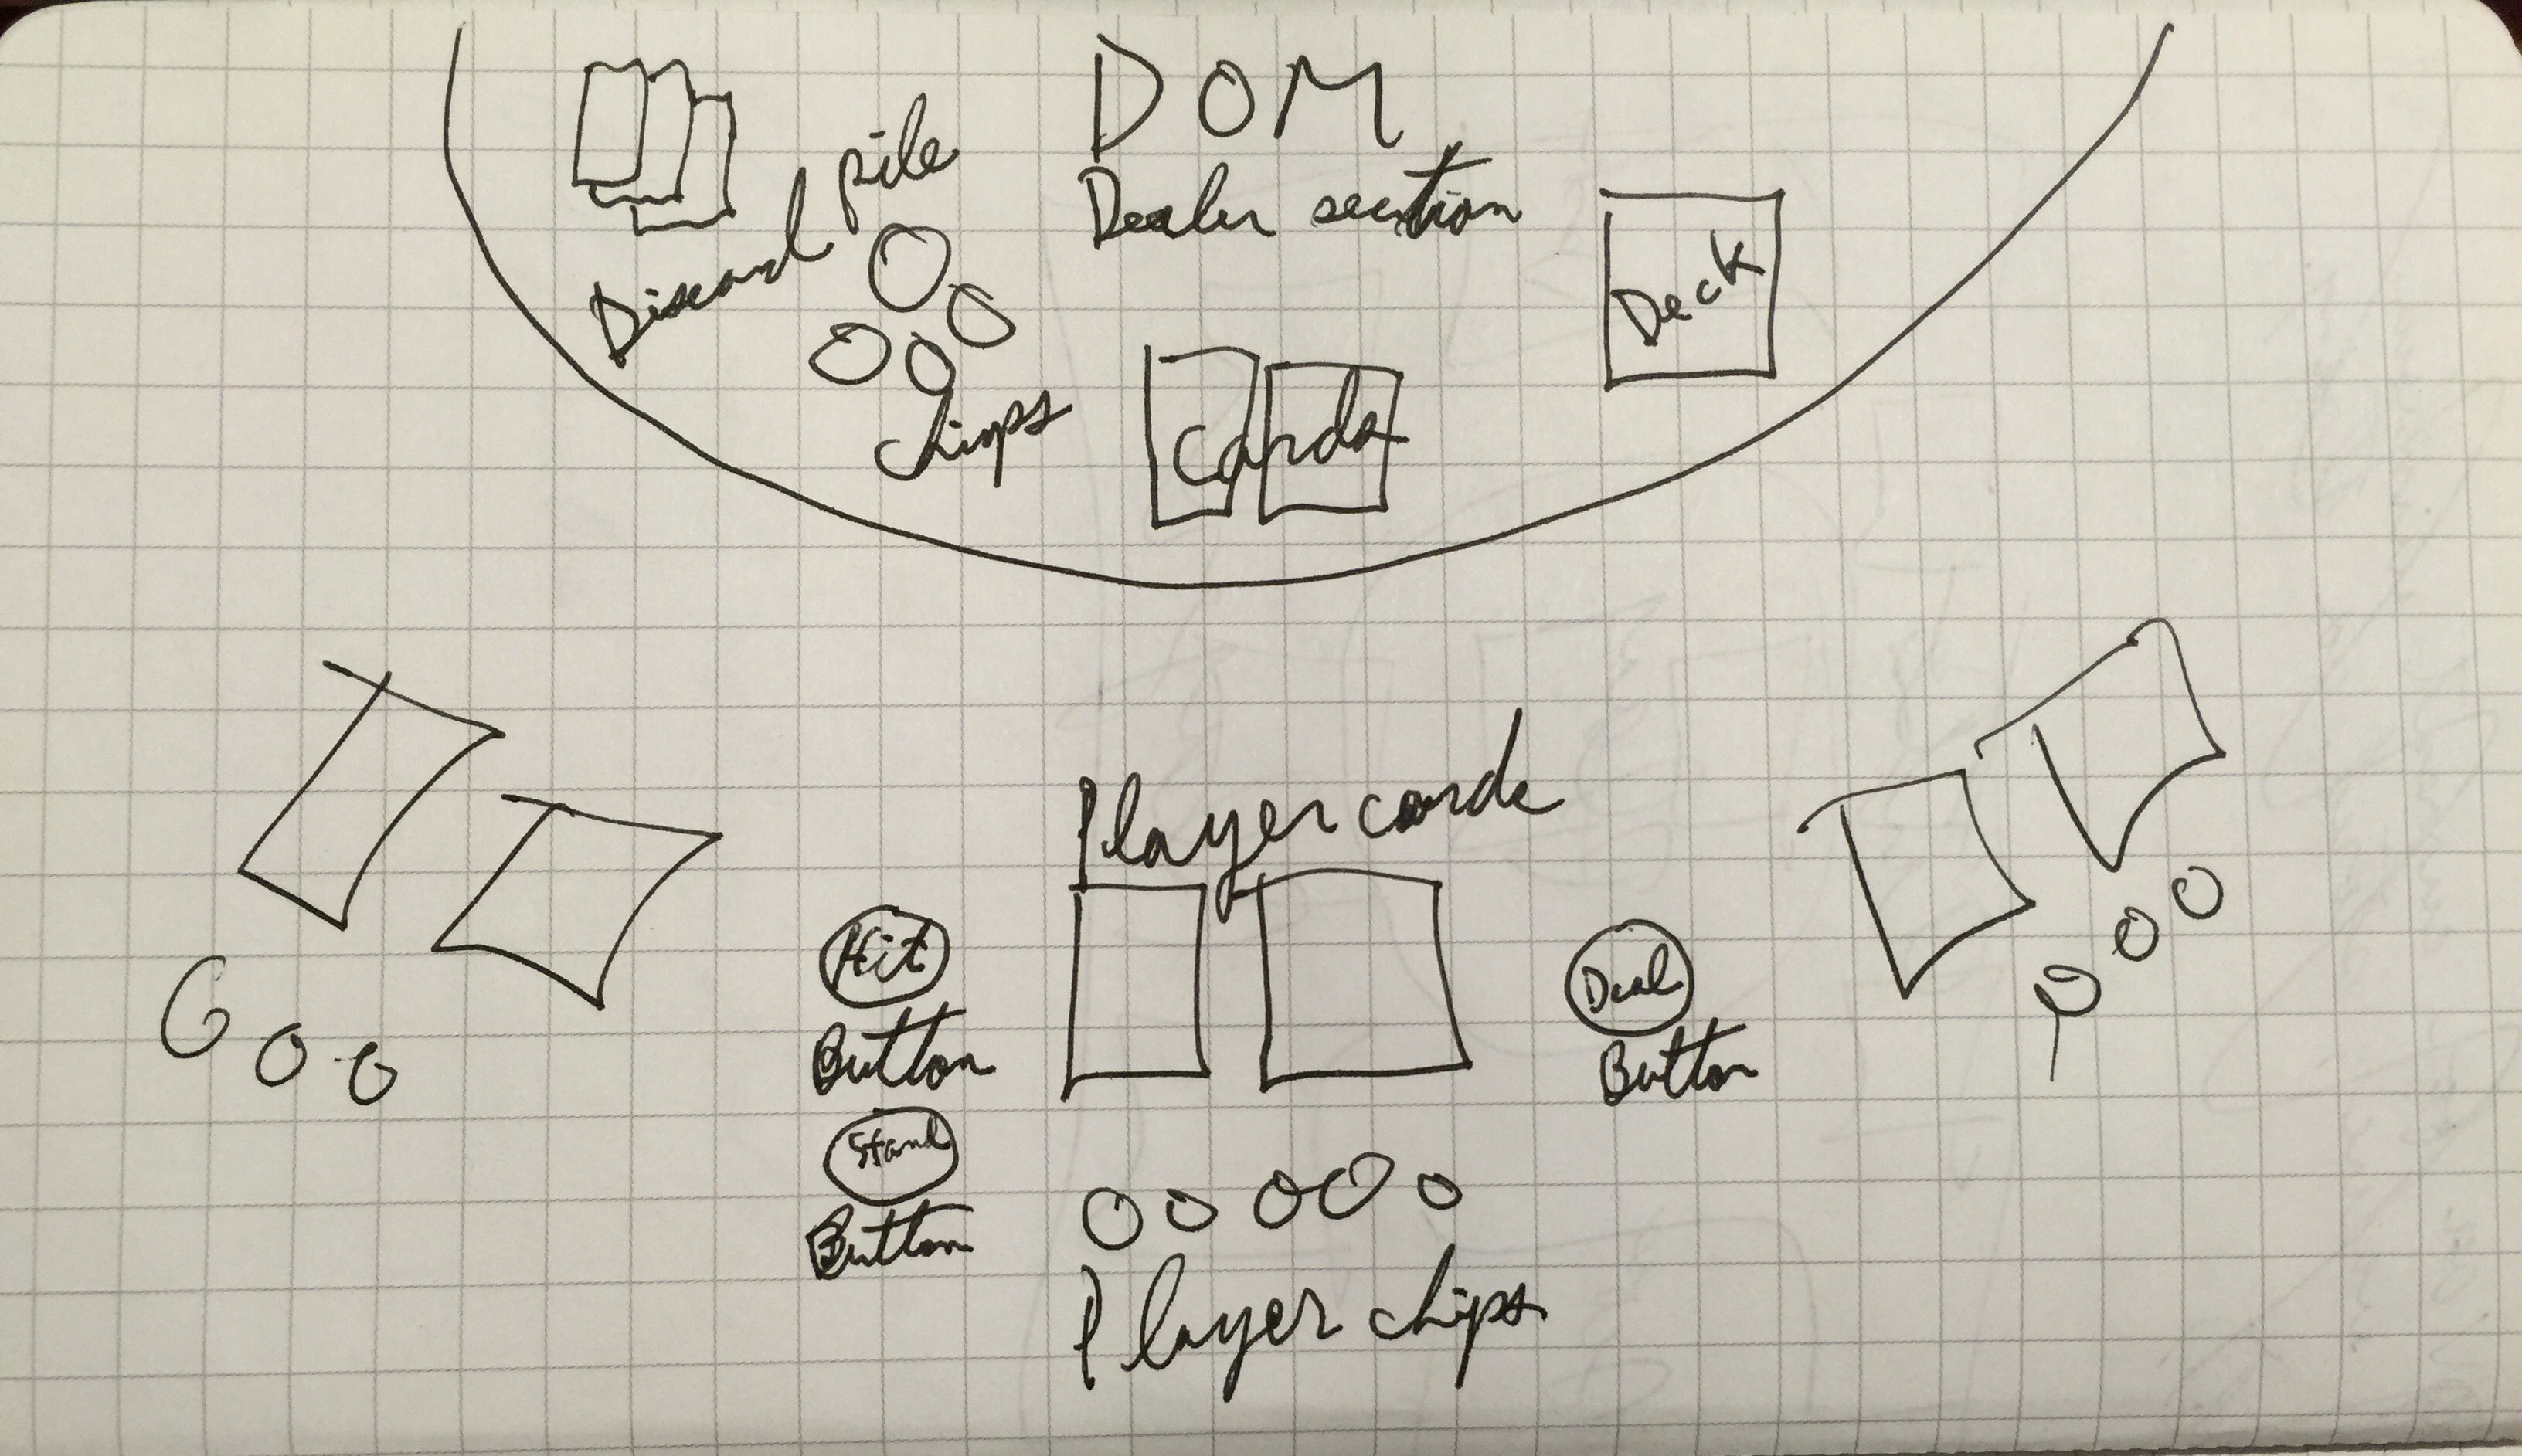 DOM
Dealer section
Discard pile
Deck
chips
Cards
Player cards
Hit
Button
Deal
Button
Stand
Button
Player chips